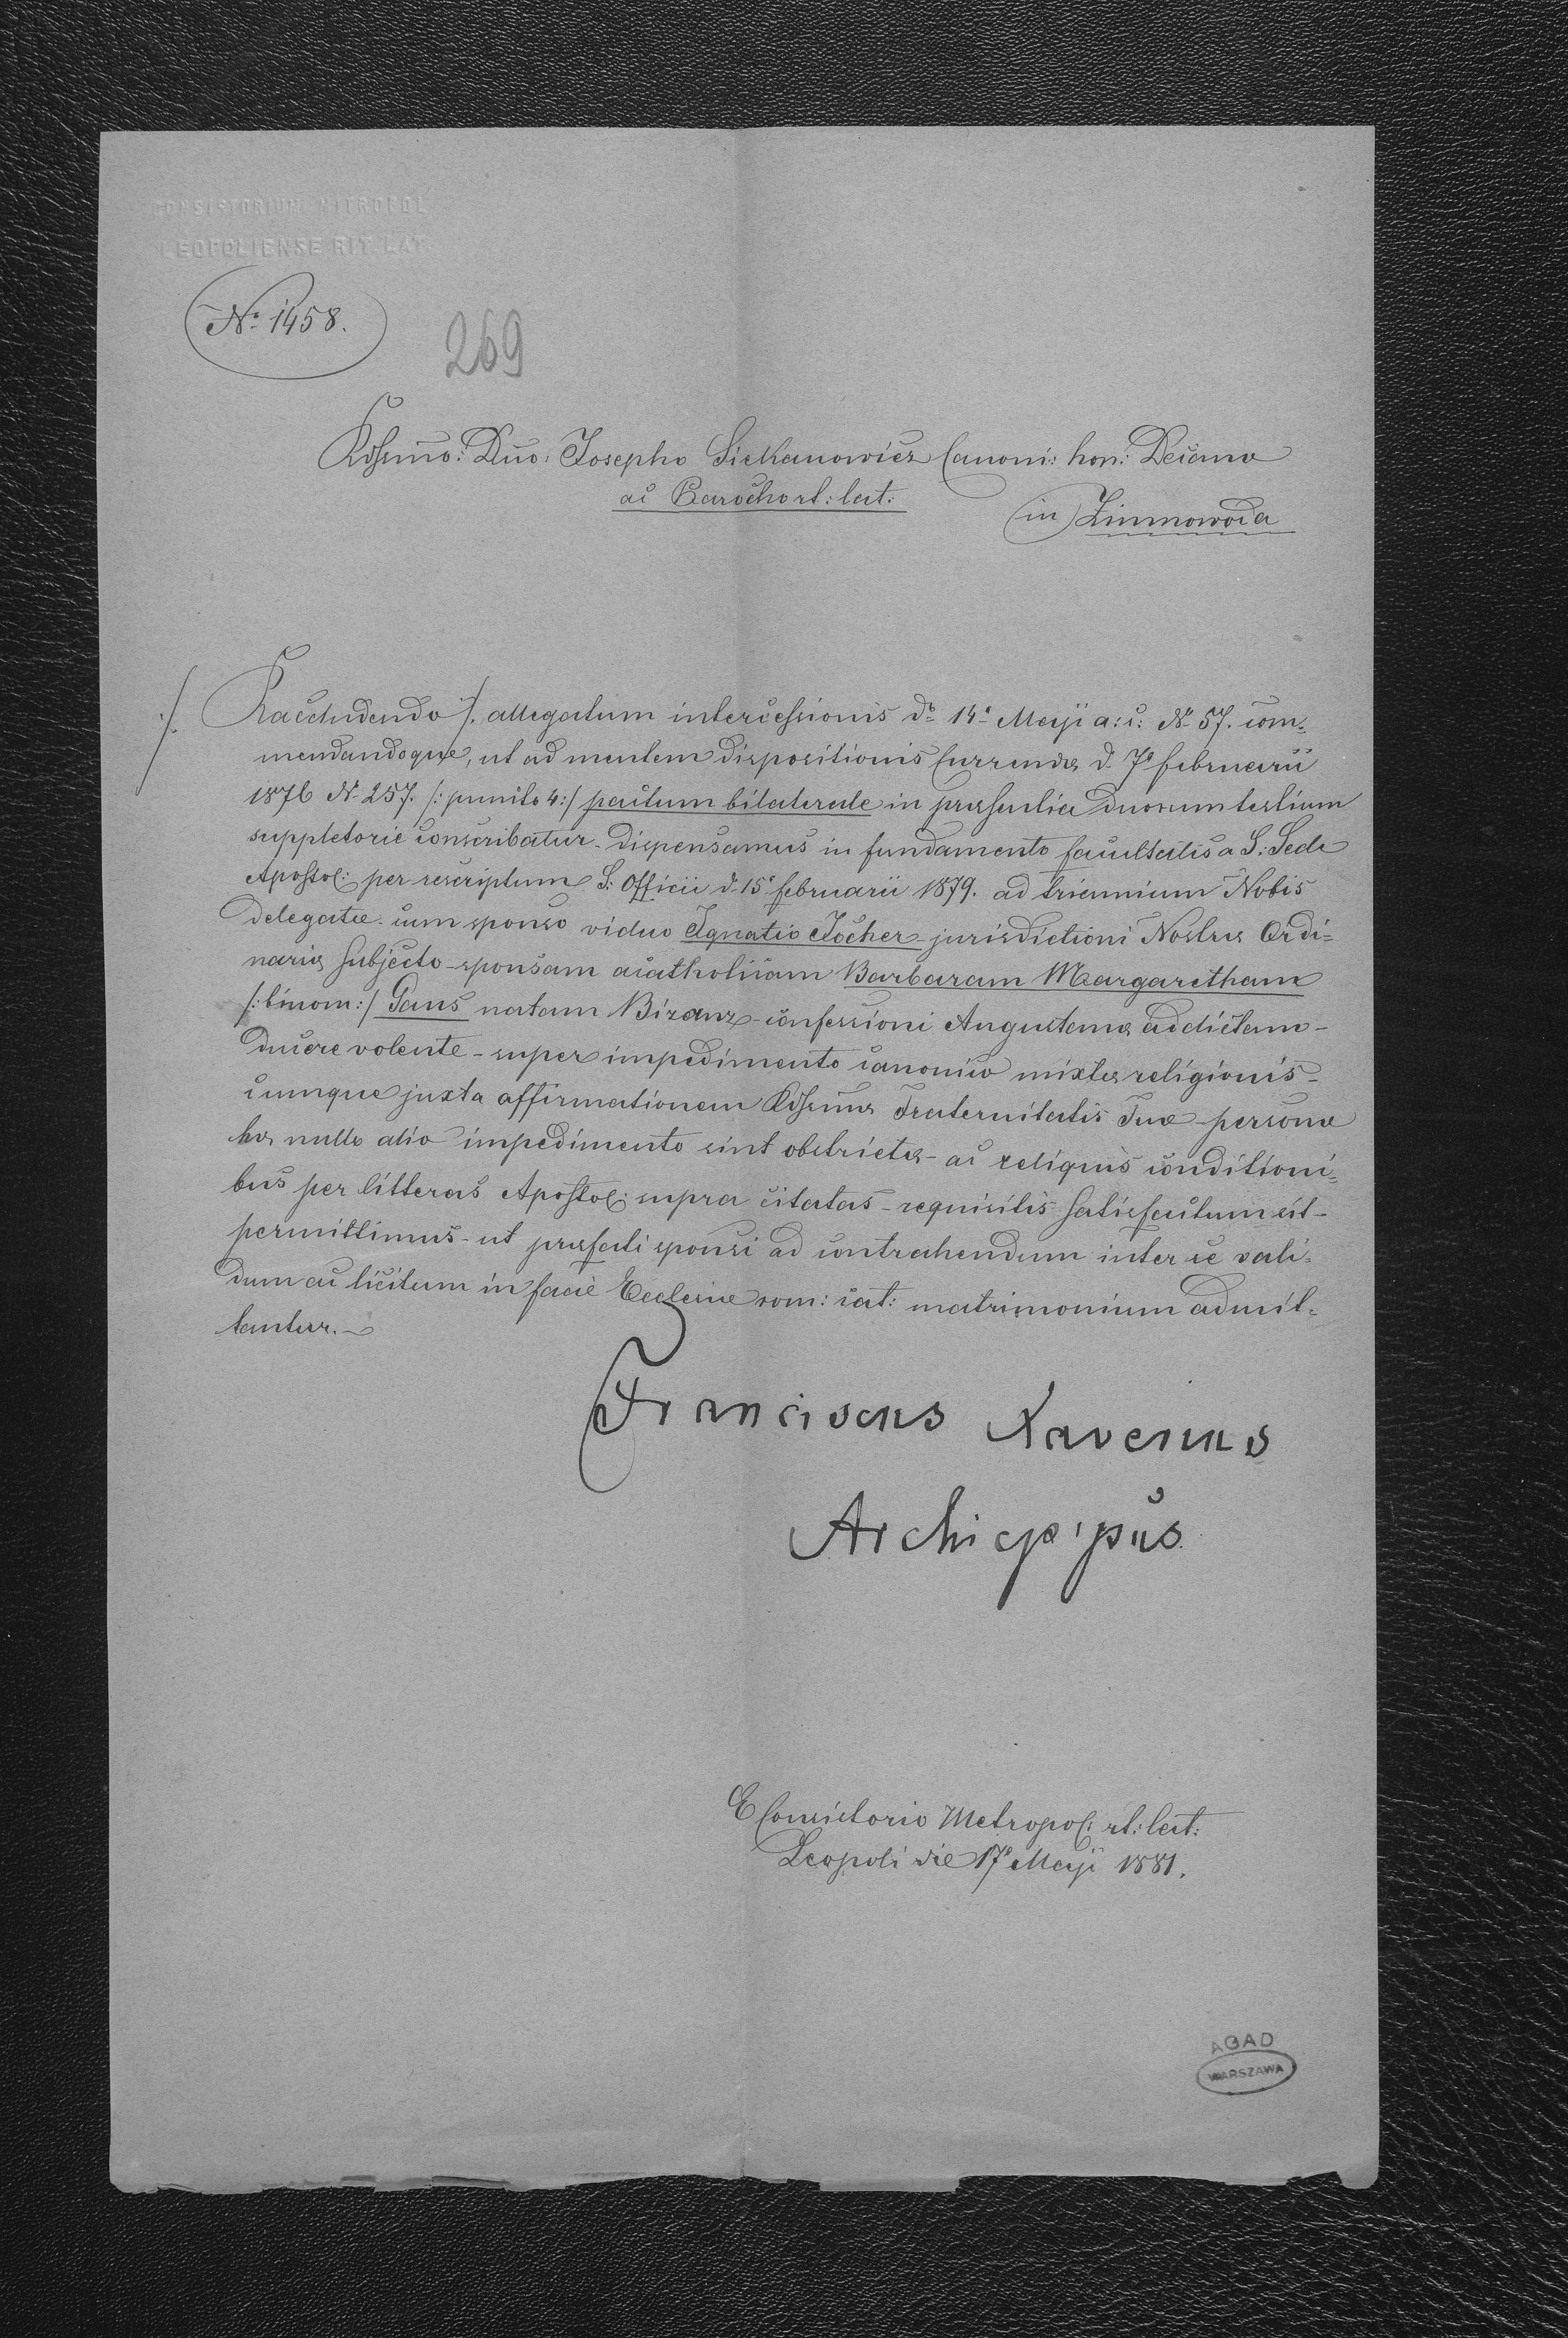 CONSISTORIUM METROPOL
LEOPOLIENSE RIT. LAT.
No. 1458.
269
Rdssmo: Dno: Josepho Siekanowicz Canoni: hon: Decano
ac Parocho rt: lat:
in Zimnowoda
./. Racludendo ./. allegatum intercessionis do 14a Maji a: c: No 57. com-
mendandoque, ut ad mentem dispositionis Currendae d. 7a februarii
1876 No 257. /: puncto 4:/ pactum bilaterale in praesentia duorum testium
suppletorie conscribatur - dispensamus in fundamento facultatis a S: Sede
Apostol: per rescriptum S: Officii d. 15a februarii 1879. ad triennium Nobis
delegatae - cum sponso viduo Ignatio Jocher - jurisdictioni Nostrae Ordi=
nariae subjecto - sponsam acatholicam Barbaram Margaretham
/: binom:/ Gaus natam Bizanz - confessioni Augustanae addictam -
ducere volente - super impedimento canonico mixtae religionis -
cumque juxta affirmationem Rdssmae Fraternitatis Tuae - personae
hae nullo alio impedimento sint obstrictae - ac reliquis conditioni=
bus per litteras Apostol: supra citatas - requisitis satisfactum sit -
permittimus - ut praefati sponsi ad contrahendum inter se vali=
dum ac licitum in facie Ecclesiae rom: cat: matrimonium admit=
tantur.
Franciscus Xaverius
Archieppus
E Consistorio Metropol: rt: lat:
Leopoli die 17a Maji 1881.
AGAD
WARSZAWA